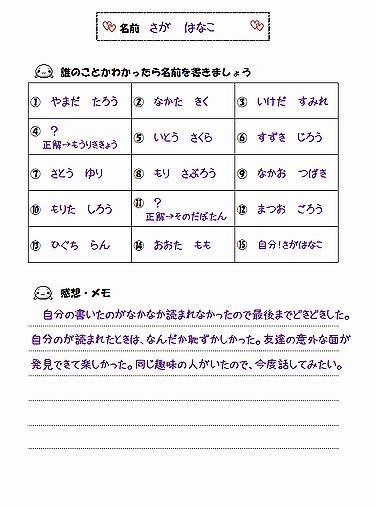 名前 さが はなこ
誰のことかわかったら名前を書きましょう
① やまだ たろう ② なかた きく ③ いけだ すみれ
④ ?
正解→もうりききょう
⑤ いとう さくら ⑥ すずき じろう
⑦ さとう ゆり ⑧ もり さぶろう ⑨ なかお つばき
⑩ もりた しろう
⑪ ?
正解→そのだぼたん
⑫ まつお ごろう
⑬ ひぐち らん ⑭ おおた もも ⑮ 自分!さがはなこ
感想・メモ
自分の書いたのがなかなか読まれなかったので最後までどきどきした。
自分のが読まれたときは、なんだか恥ずかしかった。友達の意外な面が
発見できて楽しかった。同じ趣味の人がいたので、今度話してみたい。